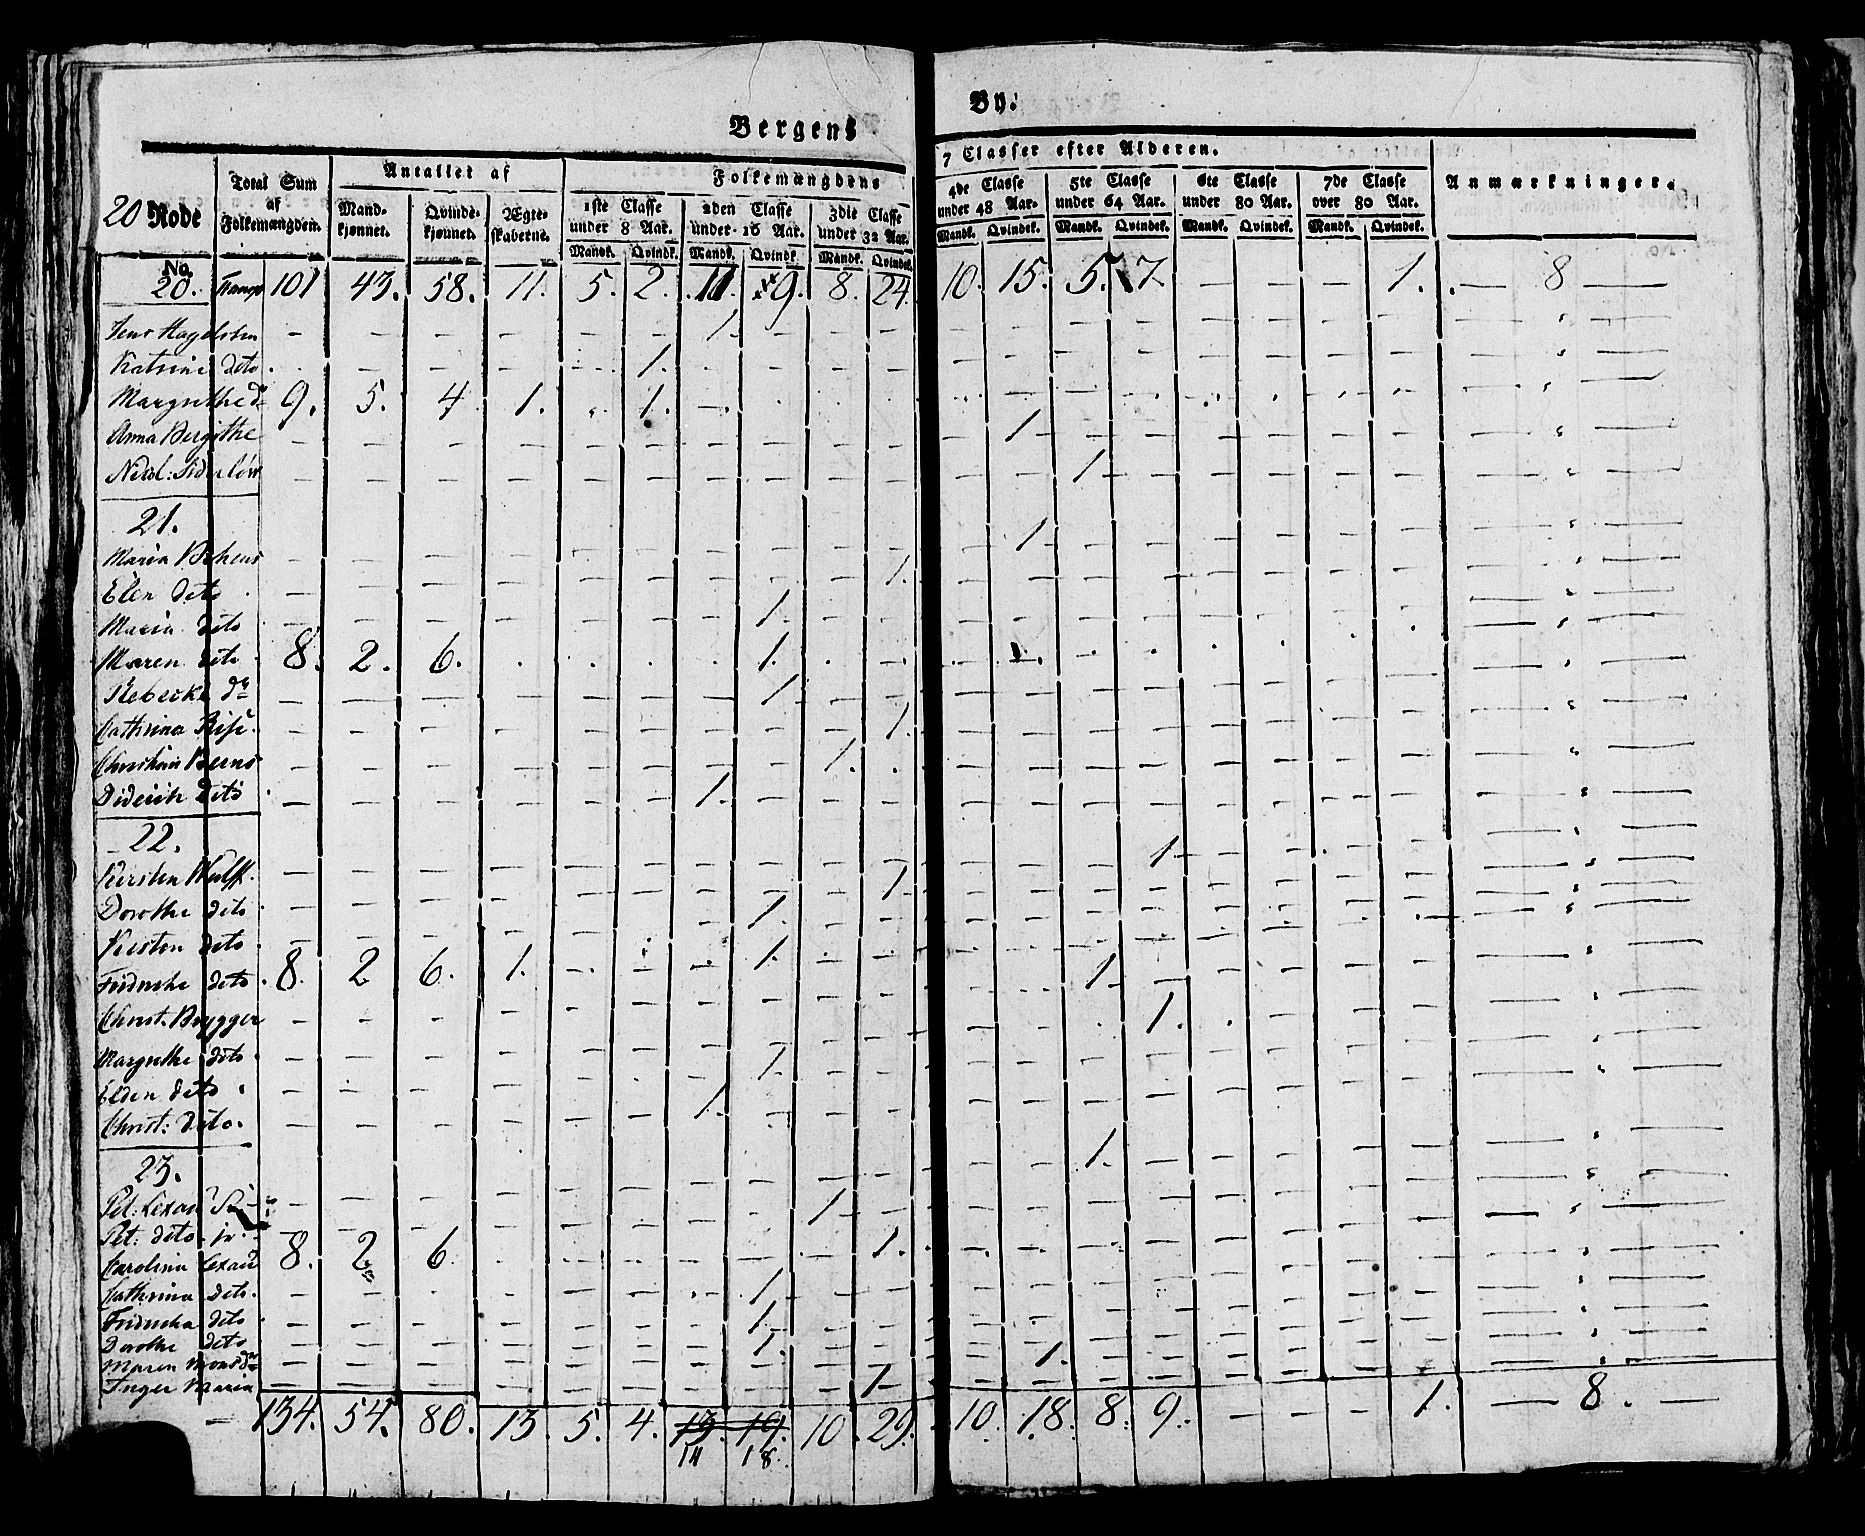 Bergens By:
20 Rode
Total Sum af Folkemængden.
Antallet af
Mand-kjønnet. Qvinde-kjønnet. Ægte-skaberne.
Folkemængdens 7 Classer efter Alderen.
1ste Classe under 8 Aar.
2den Classe under 16 Aar.
3die Classe under 32 Aar.
4de Classe under 48 Aar.
5te Classe under 64 Aar.
6te Classe under 80 Aar.
7de Classe over 80 Aar.
Anmærkninger.
Mandk. Qvindek. Mandk. Qvindk. Mandk. Qvindek. Mandk. Qvindek. Mandk. Qvindek. Mandk. Qvindek. Mandk. Qvindek.
No. 20. 101 43. 58. 11. 5. 2. 11. 9. 8. 24. 10. 15. 5. 7 — — — 1. — 8 —
Jens Hagelsten 1.
Katrine dito 1.
Margrethe do 9. 5. 4 1. 1.
Anna Bergithe 1
1
21. 1
Maria 1.
Elen dito
Maria dito 1.
Maren dito 8. 2. 6. 1.
Rebecka do 1
Cathrina 1.
Christian 1.
Diderich dito 1.
22. 1
Kirsten Wulff. 1
Dorothe dito 1.
Kirsten dito
Fridricke dito 8. 2 6. 1. 1. 1
Christ. Brygger 1.
Margrethe dito 1.
Elden dito
Christ: dito. 1
23. 1.
Pet: Lexau 1
Pet: dito jr.
Carolina Lexau 8. 2 6. 1.
Cathrina dito. 1
Fridricka dito 1.
Dorothe dito 1.
Maren 1.
Inger Maria 1
134. 54. 80. 13. 5. 4. 13. 19. 10 29. 10. 18. 8. 9. — — — 1. — 8. —
14 18.